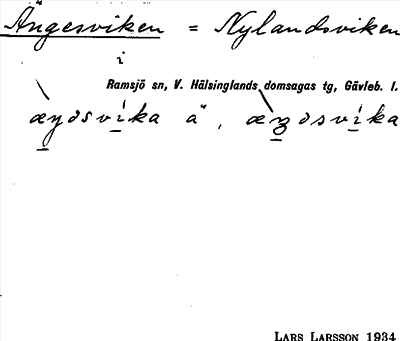 Ängesviken = Nylandsviken
i
Ramsjö sn, V. Hälsinglands domsagas tg, Gävleb. l.
æŋəsvika ä, æʒəsvika
LARS LARSSON 1934